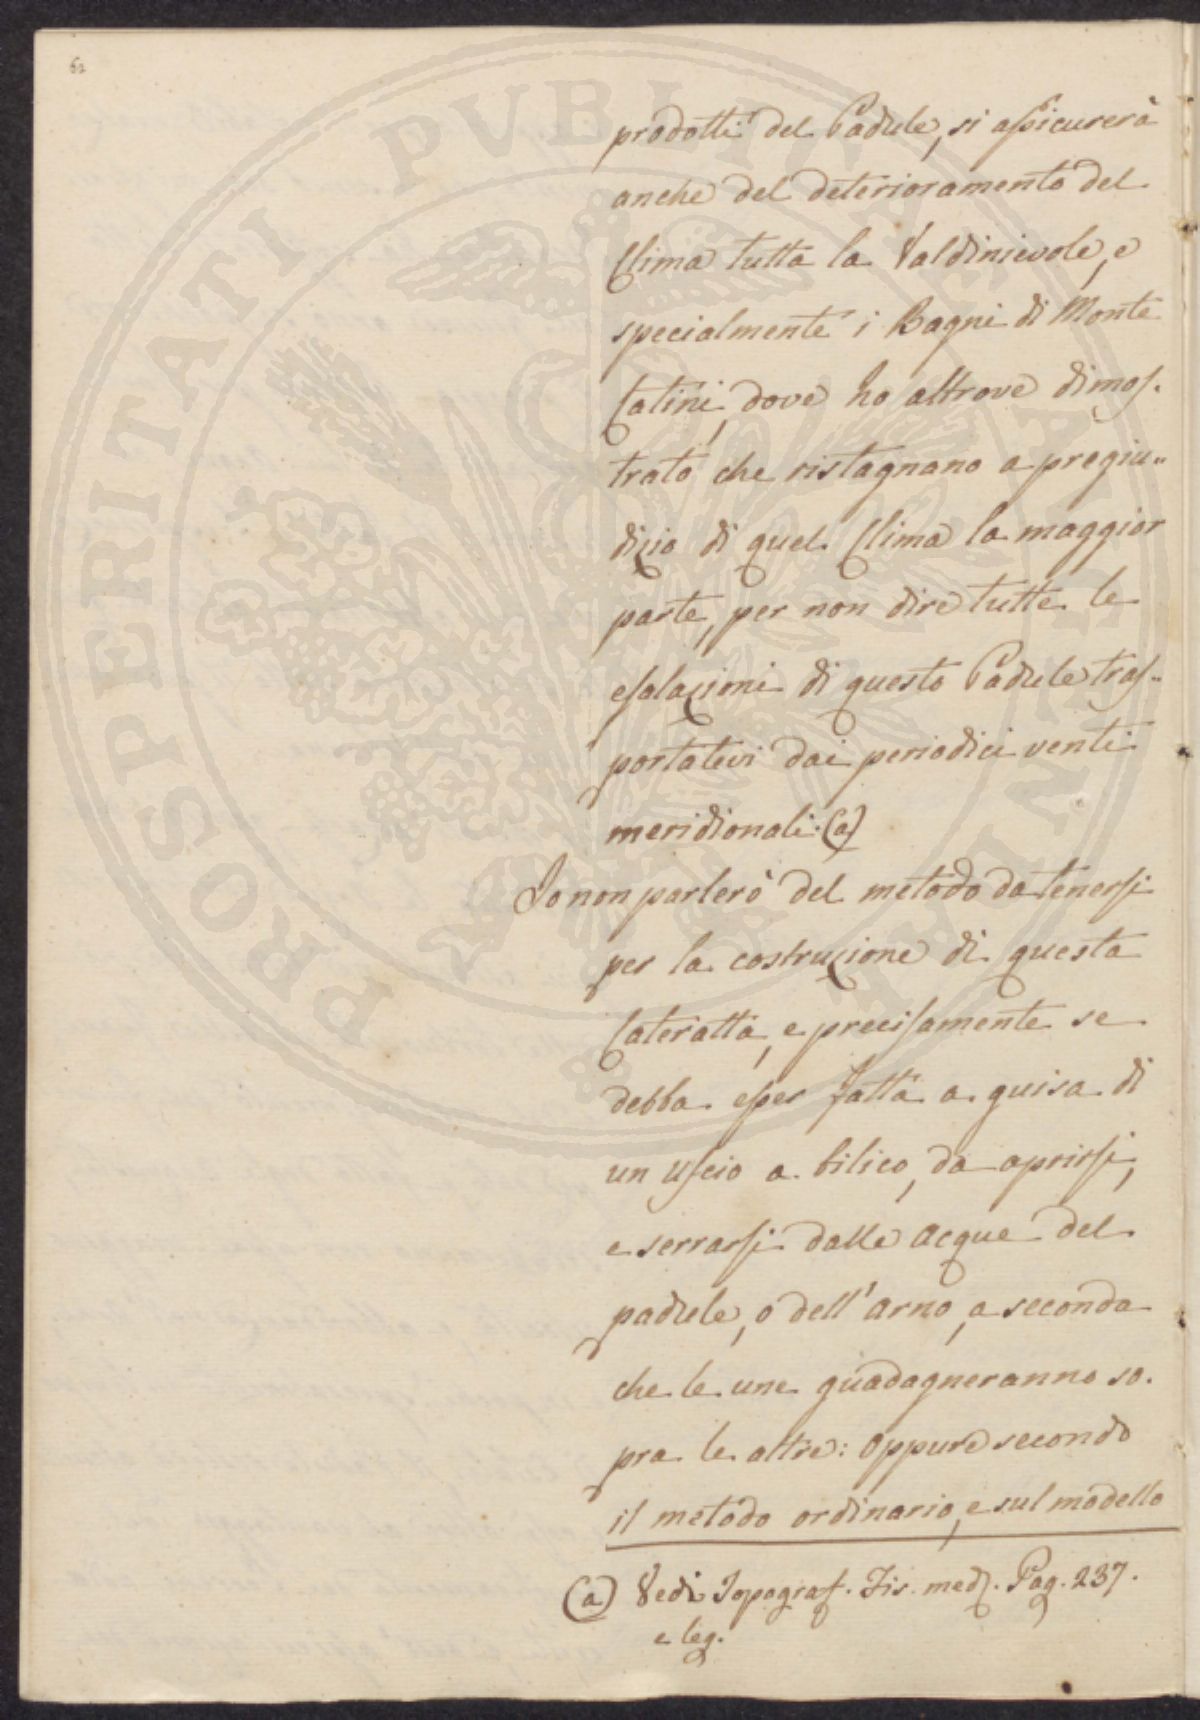 62
prodotti del Padule, si assicurerà
anche del deterioramento del
Clima tutta la Valdinievole, e
specialmente i Bagni di Monte
Catini, dove ho altrove dimos-
trato che ristagnano a pregiu-
dizio di quel Clima la maggior
parte, per non dire tutte le
esalazioni di questo Padule tras-
portatevi dai periodici venti
meridionali: (a)
Io non parlerò del metodo da tenersi
per la costruzione di questa
Cateratta, e precisamente se
debba esser fatta a guisa di
un uscio a bilico, da aprirsi,
e serrarsi dalle acque del
padule, o dell'Arno, a seconda
che le une guadagneranno so-
pra le altre: Oppure secondo
il metodo ordinario, e sul modello
(a) Vedi Topograf. Fis. med. Pag. 237.
e seg.
PROSPERITATI PUBLICAE AUGENDAE